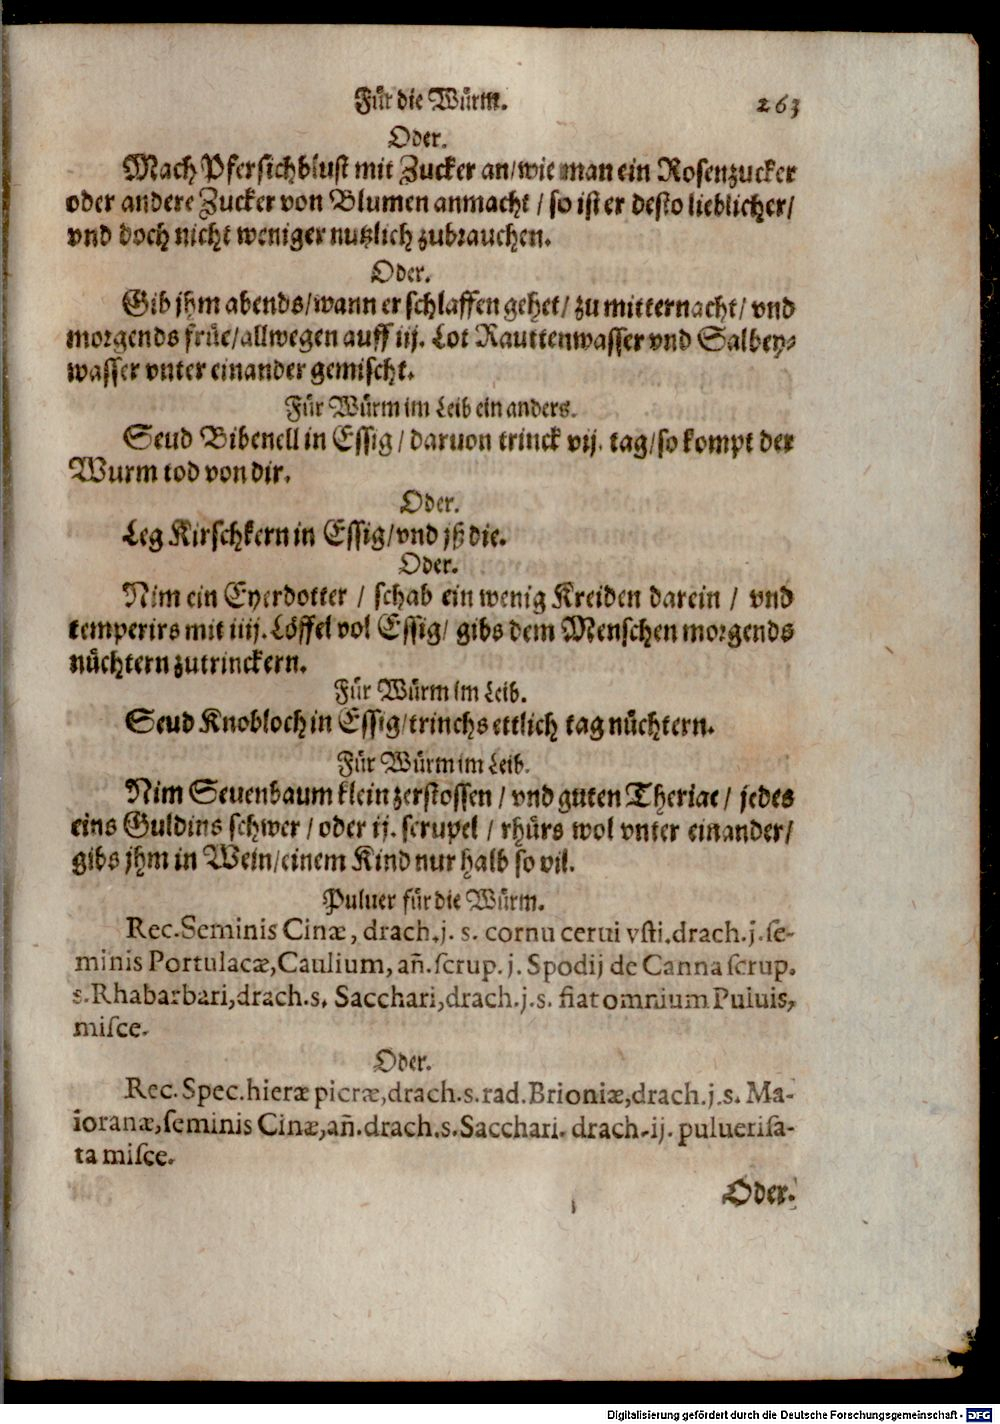 Für die Würm. 263
Oder.
Mach Pfersichblust mit Zucker an/wie man ein Rosenzucker
oder andere Zucker von Blumen anmacht / so ist er desto lieblicher/
vnd doch nicht weniger nutzlich zubrauchen.
Oder.
Gib jhm abends/wann er schlaffen gehet/ zu mitternacht/ vnd
morgends früe/allwegen auff iij. Lot Rauttenwasser vnd Salbey-
wasser vnter einander gemischt.
Für Würm im Leib ein anders.
Seud Bibenell in Essig / daruon trinck vij. tag/so kompt der
Wurm tod von dir.
Oder.
Leg Kirschkern in Essig/vnd jß die.
Oder.
Nim ein Eyerdotter / schab ein wenig Kreiden darein / vnd
temperirs mit iiij. Löffel vol Essig/ gibs dem Menschen morgends
nüchtern zutrinckern.
Für Würm im Leib.
Seud Knobloch in Essig/trinchs ettlich tag nüchtern.
Für Würm im Leib.
Nim Seuenbaum klein zerstossen / vnd guten Theriac/ jedes
eins Guldins schwer / oder ij. scrupel / rhürs wol vnter einander/
gibs jhm in Wein/einem Kind nur halb so vil.
Puluer für die Würm.
Rec. Seminis Cinæ, drach.j. s. cornu cerui vſti.drach.j.ſe-
minis Portulacæ,Caulium, añ.scrup. j. Spodij de Canna scrup.
s.Rhabarbari,drach.s. Sacchari,drach.j.s. fiat omnium Puluis,
miſce.
Oder.
Rec. Spec.hieræ picræ,drach.s.rad.Brioniæ,drach.j.s. Ma-
ioranæ,ſeminis Cinæ,añ.drach.s.Sacchari. drach.ij. pulueriſa-
ta miſce.
Oder.
Digitalisierung gefördert durch die Deutsche Forschungsgemeinschaft - DFG